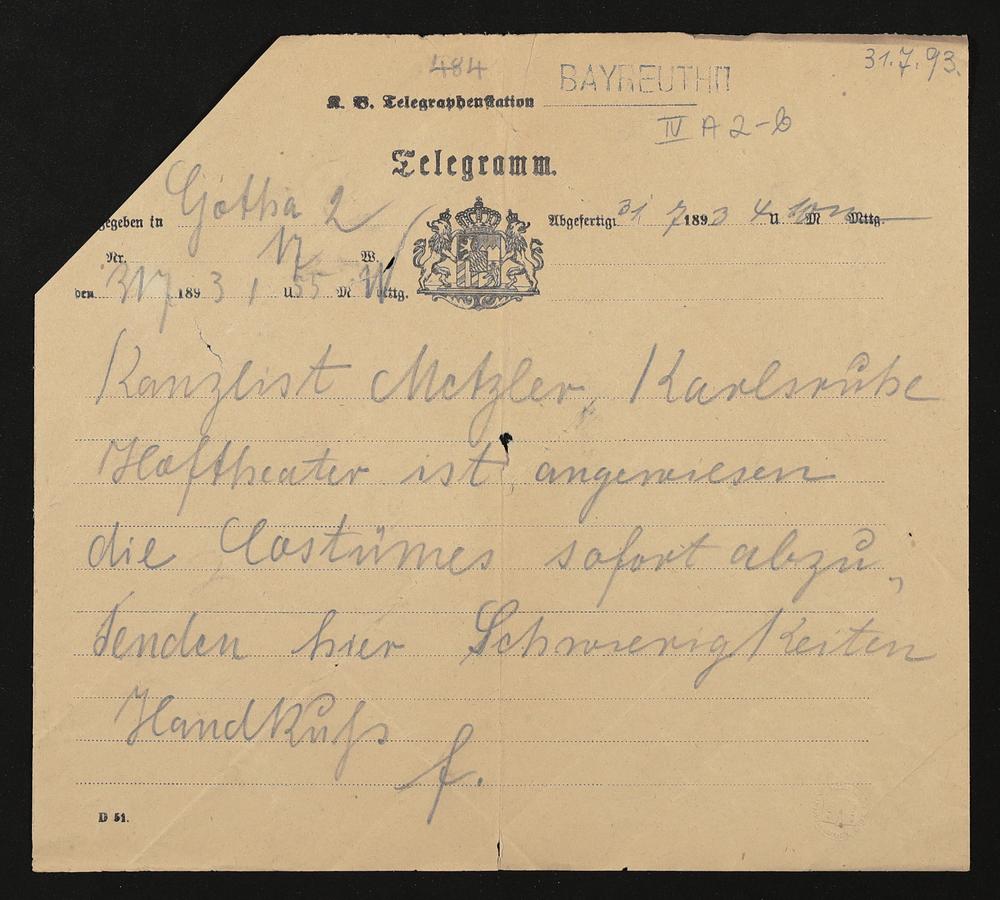 31.7.93.
484
K. B. Telegraphenstation BAYREUTH
IV A 2-6
Telegramm.
gegeben in Gotha 2
Abgefertigt 31 7 1893 4 U M Mttg.
Nr. 17 W.
den 31 7 1893 1 U 55 M Mttg.
Kanzlist Metzler, Karlsruhe
Hoftheater ist angewiesen
die Costümes sofort abzu„
senden hier Schwierigkeiten
Handkuß
f.
D 51.